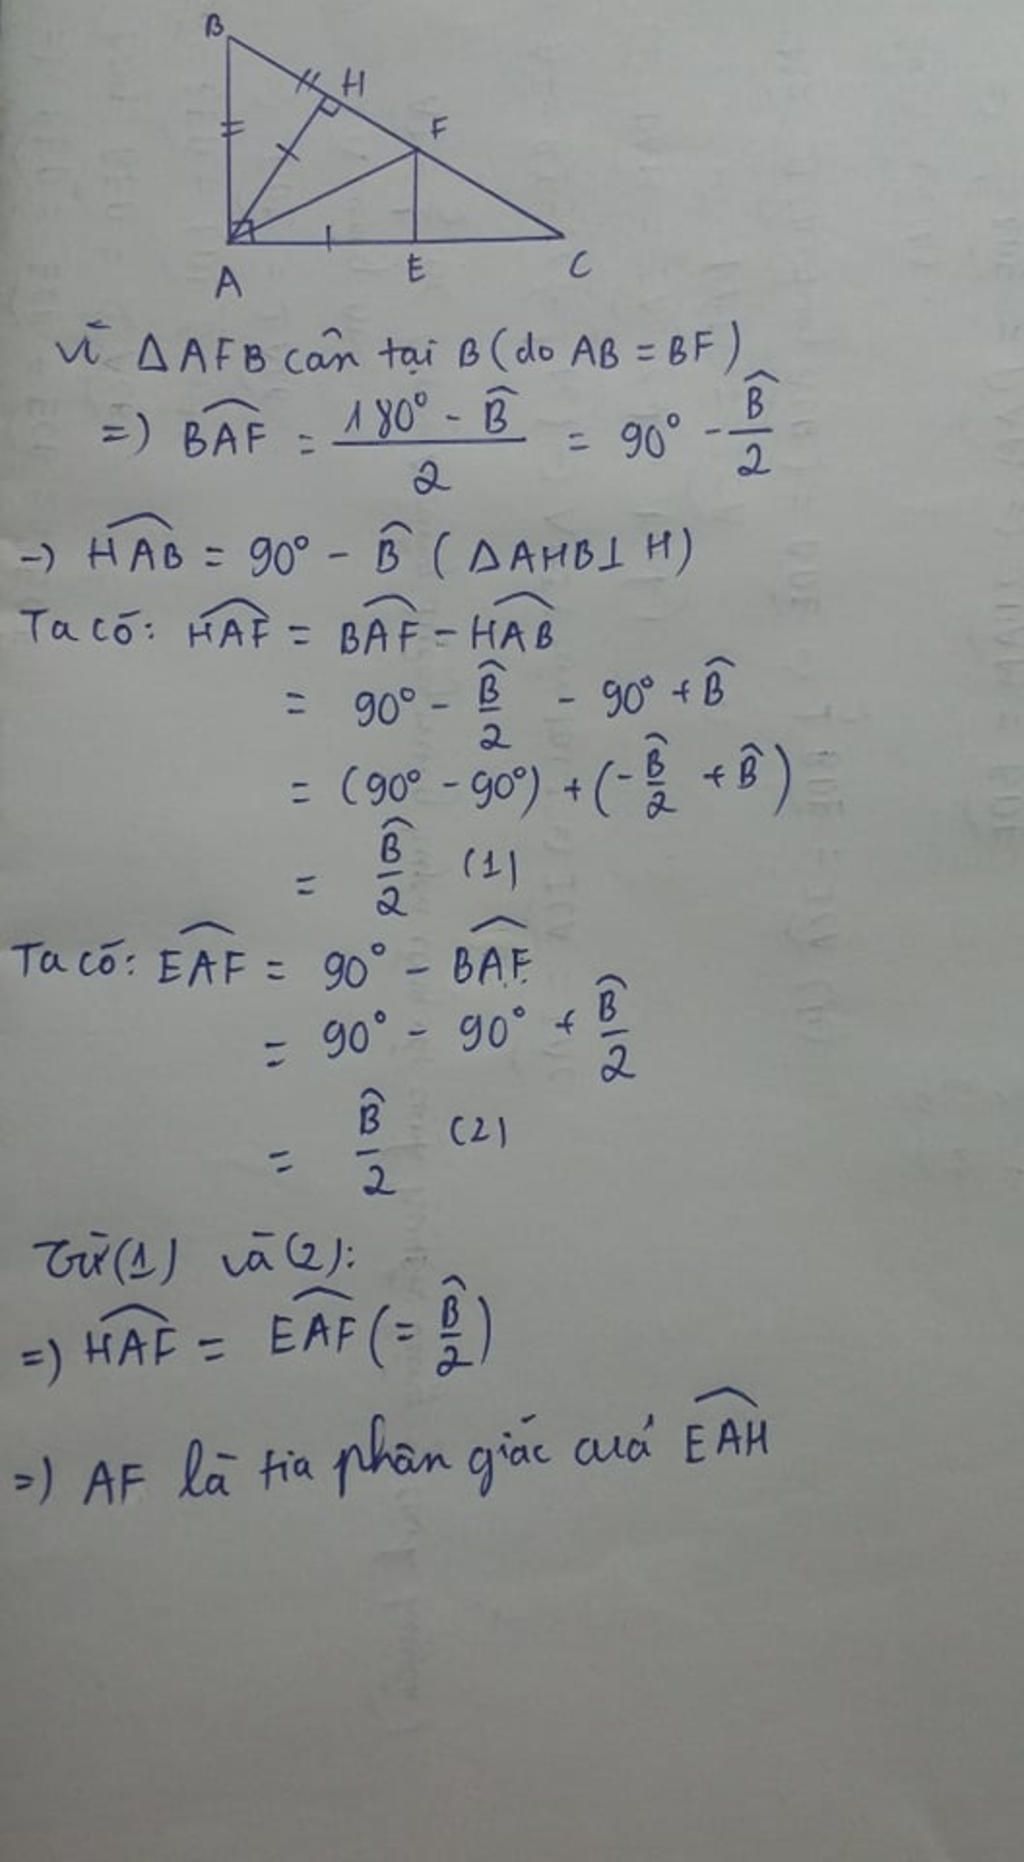 B
H
F
A
E
C
Vì ΔAFB cân tại B (do AB = BF)
=) \widehat{BAF} = \frac{180° - \widehat{B}}{2} = 90° - \frac{\widehat{B}}{2}
-) \widehat{HAB} = 90° - \widehat{B} (ΔAHB⊥H)
Ta có: \widehat{HAF} = \widehat{BAF} - \widehat{HAB}
= 90° - \frac{\widehat{B}}{2} - 90° + \widehat{B}
= (90° - 90°) + (-\frac{\widehat{B}}{2} + \widehat{B})
= \frac{\widehat{B}}{2} (1)
Ta có: \widehat{EAF} = 90° - \widehat{BAF}
= 90° - 90° + \frac{\widehat{B}}{2}
= \frac{\widehat{B}}{2} (2)
Từ (1) và (2):
=) \widehat{HAF} = \widehat{EAF} (= \frac{\widehat{B}}{2})
=) AF là tia phân giác của \widehat{EAH}